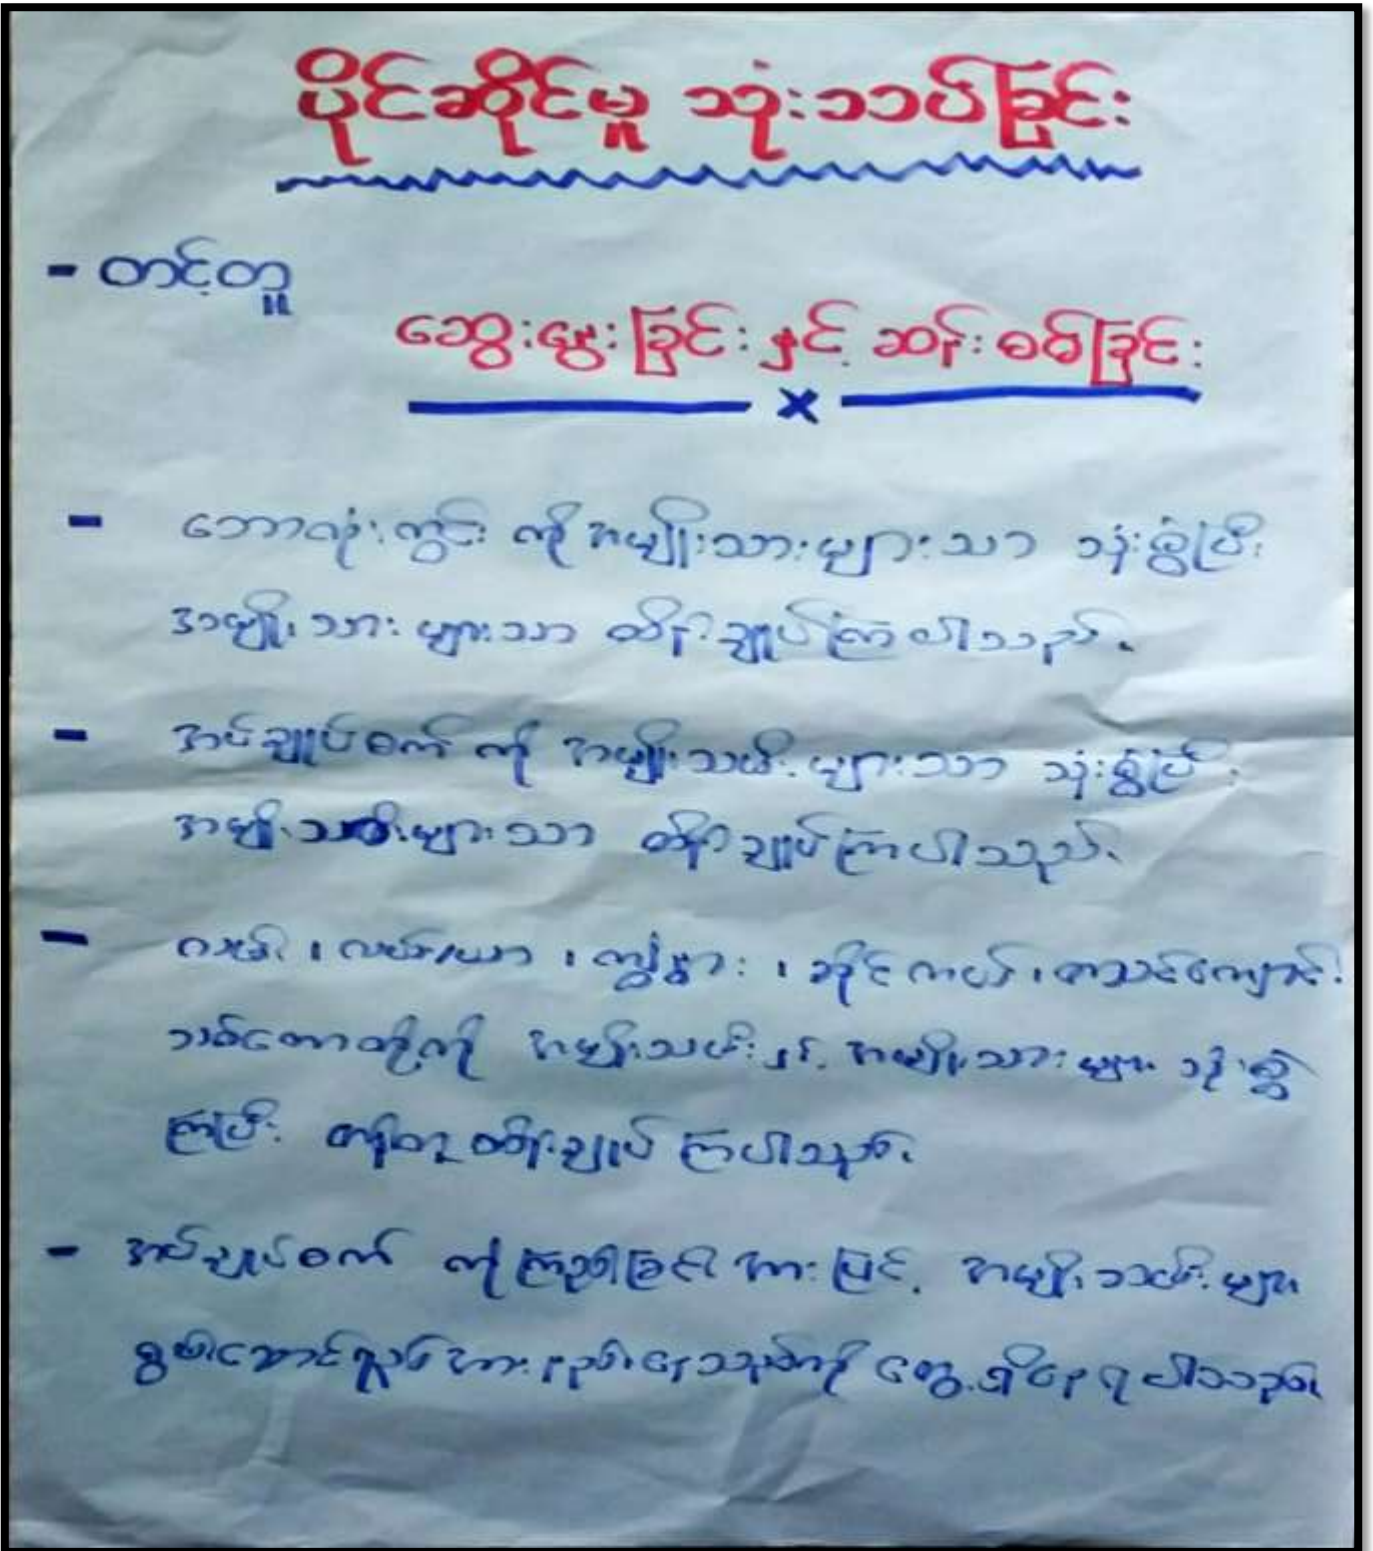 ပိုင်ဆိုင်မှု သုံးသပ်ခြင်း
- တင့်တူ
ဆွေးနွေးခြင်းနှင့် ဆန်းစစ်ခြင်း
- ဘောလုံးကွင်း ကို အမျိုးသားများသာ သုံးစွဲပြီး
အမျိုးသားများသာ ထိန်းချုပ်ကြပါသည်။
- အပ်ချုပ်စက် ကို အမျိုးသမီးများသာ သုံးစွဲပြီး
အမျိုးသမီးများသာ ထိန်းချုပ်ကြပါသည်။
- လယ်/ယာ ၊ ကျွဲနွား ၊ ဆိုင်ကယ် ၊ စာသင်ကျောင်း
သစ်တောတို့ကို အမျိုးသမီးနှင့် အမျိုးသားများ သုံးစွဲ
ကြပြီး ထိန်းချုပ် ကြပါသည်။
- အပ်ချုပ်စက် ကိုကြည့်ခြင်း အားဖြင့် အမျိုးသမီးများ
စွမ်းဆောင်ရည် အားနည်းနေသည်ကို တွေ့ရှိနေရပါသည်။